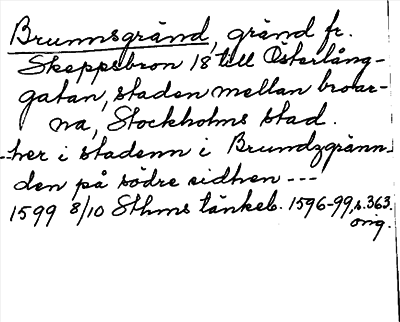 Brunnsgränd, gränd fr.
Skeppsbron 18 till Österlång-
gatan, staden mellan broar-
na, Stockholms stad.
--her i stadenn i Brundzgränn-
den på södre sidhen ---
1599 8/10 Sthms tänkeb. 1596-99, s. 363.
orig.